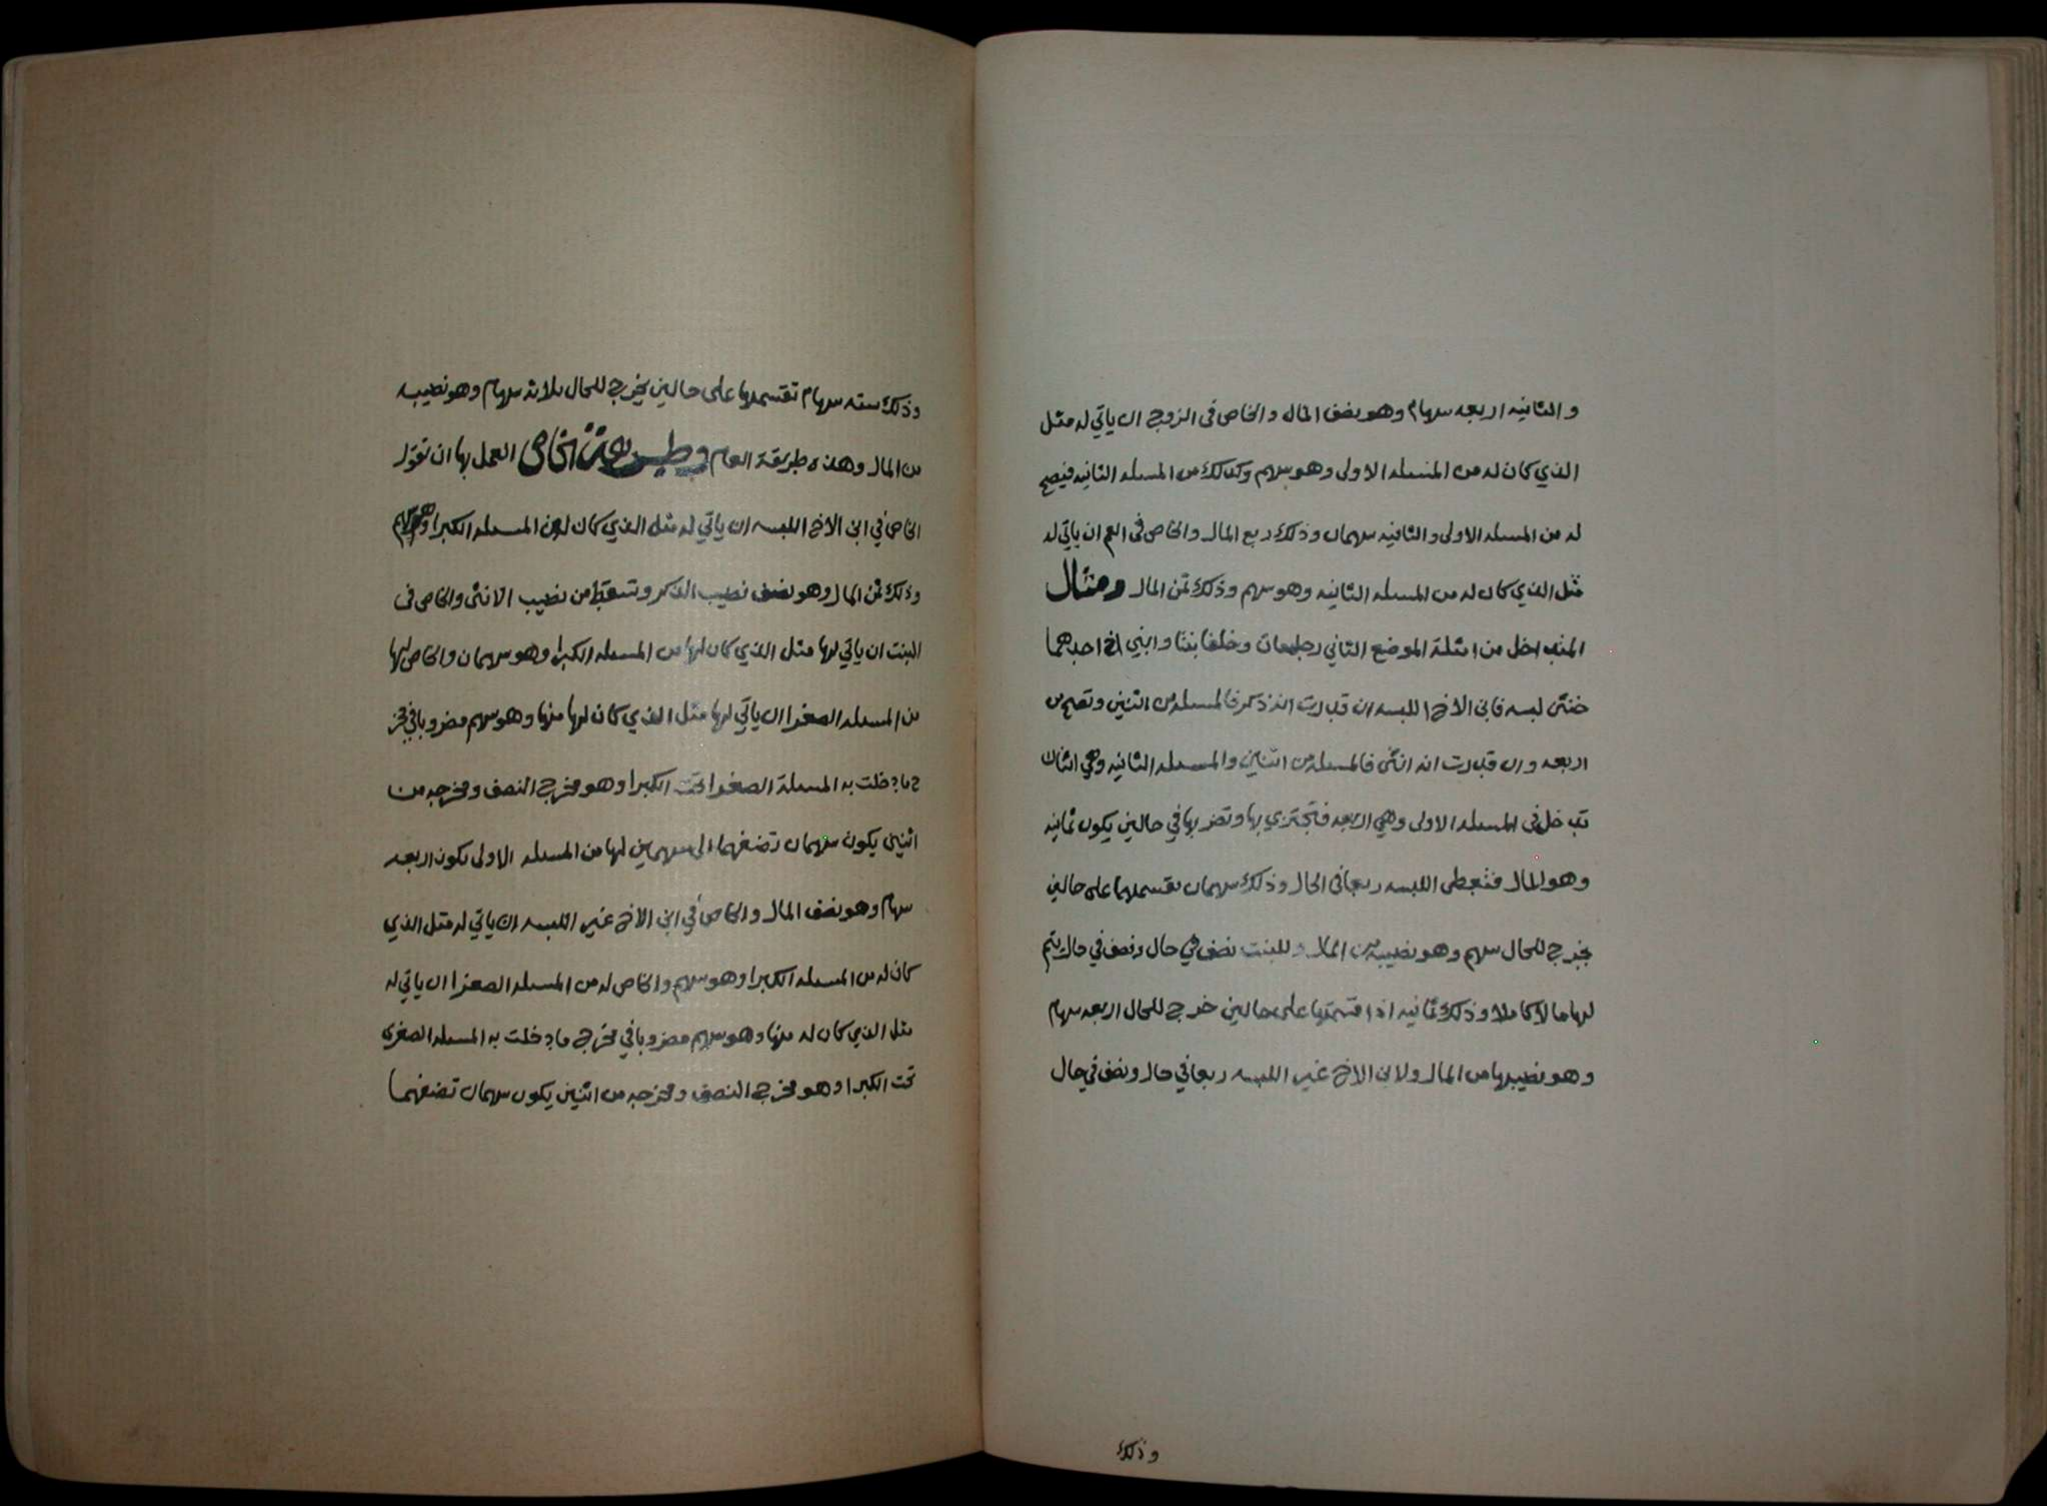 والثانيه اربعه سهام وهو نصف المال والخاص فى الزوج ان ياتي له مثل
الذي كان له من المسئله الاولى وهو سهم وكذلك من المسئله الثانيه فيصح
له من المسئله الاولى والثانيه سهمان وذلك ربع المال والخاص فى العم ان ياتي له
مثل الذي كان له من المسئله الثانيه وهو سهم وذلك ثمن المال ومثال
المتداخل من امثلة الموضع الثاني رجل مات وخلف بنتا وابني اخ احدهما
خنثى لبسه فابن الاخ اللبسه ان قدرت انه ذكر فالمسئله من اثنين وتصح من
اربعه وان قدرت انه انثى فالمسئله من اثنين والمسئله الثانيه وهي اثنان
تدخل فى المسئله الاولى وهي اربعه فتجتزي بها وتضربها في حالين يكون ثمانيه
وهو المال فتعطى اللبسه ربعا فى الحال وذلك سهمان تقسمهما على حالين
يخرج للحال سهم وهو نصيبه من المال وللبنت نصف في حال ونصف في حال يتم
لها مالا كاملا وذلك ثمانيه اذا قسمتها على حالين خرج للحال اربعه سهام
وهو نصيبها من المال ولابن الاخ غير اللبسه ربعا في حال ونصف في حال
وذلك
وذلك سته سهام تقسمها على حالين يخرج للحال ثلاثه سهام وهو نصيبه
من المال وهذه طريقة العام وطريقة الخاص العمل بها ان تقول
الخاص في ابن الاخ اللبسه ان ياتي له مثل الذي كان له من المسئله الكبرا وهو سهم
وذلك ثمن المال وهو نصف نصيب الذكر وتسقط من نصيب الانثى والخاص فى
البنت ان ياتي لها مثل الذي كان لها من المسئله الكبرا وهو سهمان والخاص لها
من المسئله الصغرا ان ياتي لها مثل الذي كان لها منها وهو سهم مضروبا في مخر
ج ما دخلت به المسئلة الصغرا تحت الكبرا وهو مخرج النصف ومخرجه من
اثنين يكون سهمان تضفهما الى سهمين لها من المسئله الاولى يكون اربعه
سهام وهو نصف المال والخاص في ابن الاخ غير اللبسه ان ياتي له مثل الذي
كان له من المسئله الكبرا وهو سهم والخاص له من المسئله الصغرا ان ياتي له
مثل الذي كان له منها وهو سهم مضروبا في مخرج ما دخلت به المسئله الصغرى
تحت الكبرا وهو مخرج النصف ومخرجه من اثنين يكون سهمان تضفهما